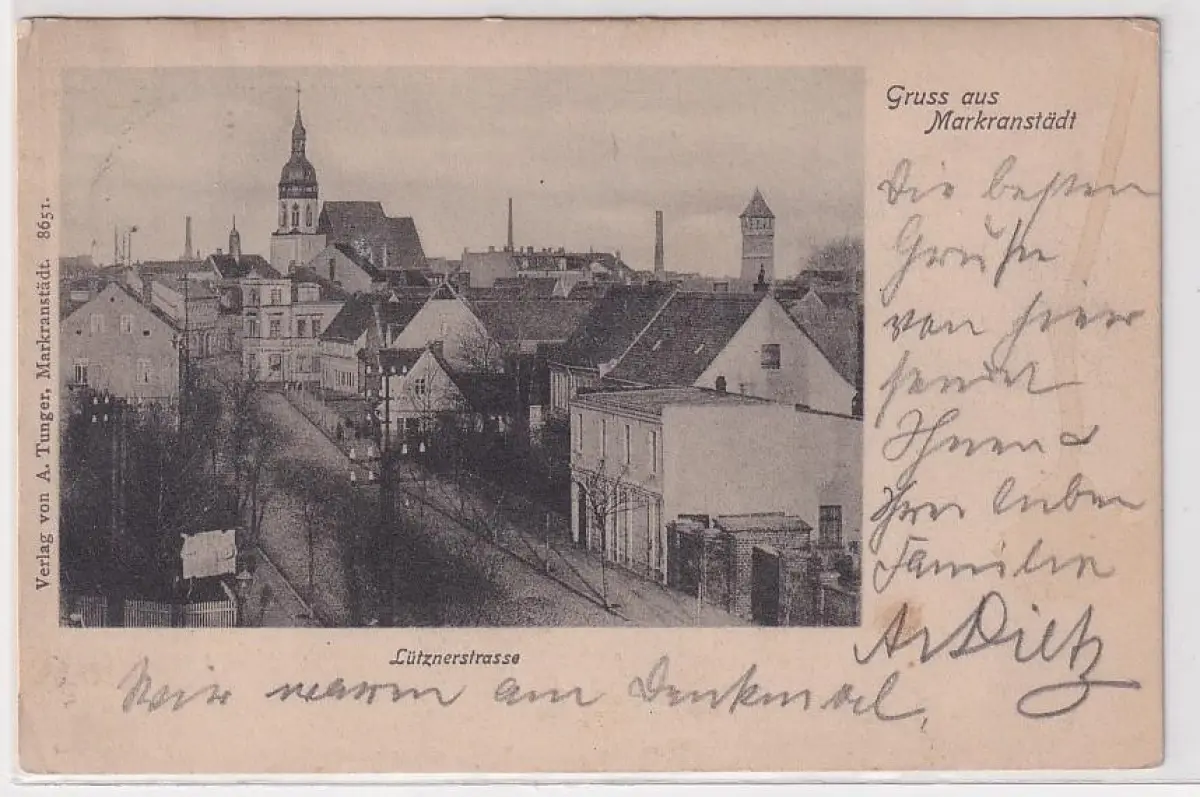 Gruss aus
Markranstädt
Die besten
Grüße
von hier
sendet
Ihnen &
Ihrer lieben
Familie
Dietz
Lütznerstrasse
Wir waren am Denkmal,
Verlag von A. Tunger, Markranstädt. 8651.